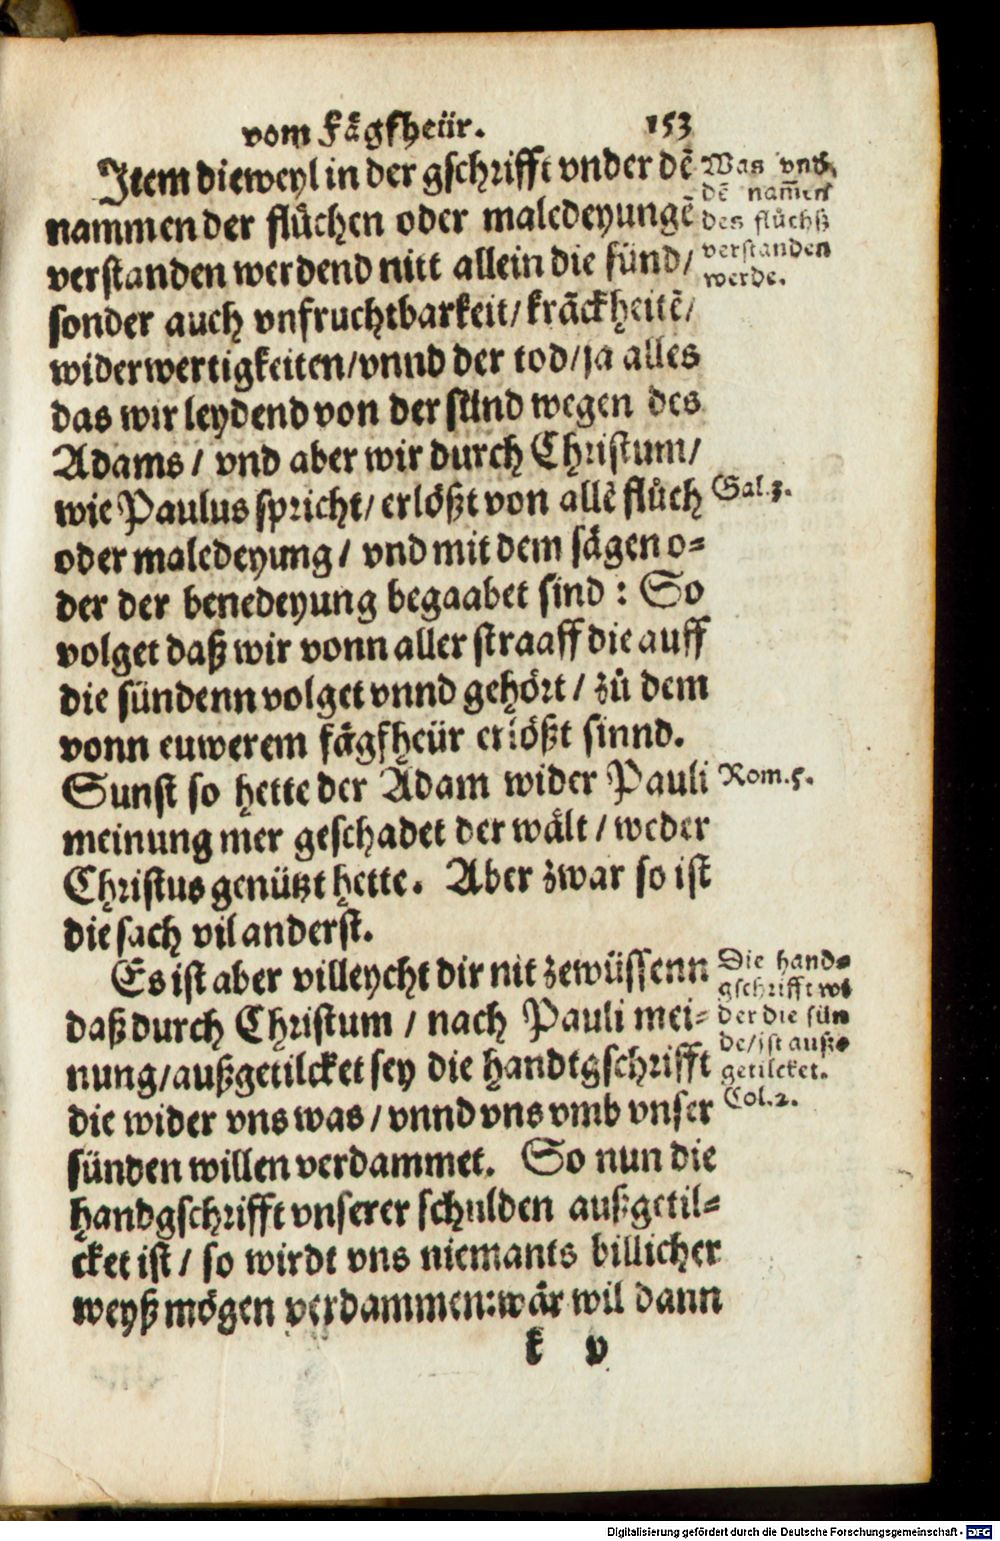 vom Fågfheür. 153
Item dieweyl in der gschrifft vnder dē
nammen der flůchen oder maledeyungē
verstanden werdend nitt allein die sünd/
sonder auch vnfruchtbarkeit/ krāckheitē/
widerwertigkeiten/ vnnd der tod/ ja alles
das wir leydend von der sünd wegen des
Adams/ vnd aber wir durch Christum/
wie Paulus spricht/ erlößt von allē flůch
oder maledeyung/ vnd mit dem sågen o-
der der benedeyung begaabet sind: So
volget daß wir vonn aller straaff die auff
die sündenn volget vnnd gehört/ zů dem
vonn euwerem fågfheür erlößt sinnd.
Sunst so hette der Adam wider Pauli
meinung mer geschadet der wålt/ weder
Christus genützt hette. Aber zwar so ist
die sach vil anderst.
Es ist aber villeycht dir nit zewüssenn
daß durch Christum/ nach Pauli mei-
nung/ außgetilcket sey die handtgschrifft
die wider vns was/ vnnd vns vmb vnser
sünden willen verdammet. So nun die
handgschrifft vnserer schulden außgetil-
cket ist/ so wirdt vns niemants billicher
weyß mögen verdammen: wår wil dann
k v
Was vnd.
dē nam̄en
des flůchß
verstanden
werde.
Gal.3.
Rom.5.
Die hand-
gschrifft wi
der die sün
de/ ist auß-
getilcket.
Col.2.
Digitalisierung gefördert durch die Deutsche Forschungsgemeinschaft - DFG